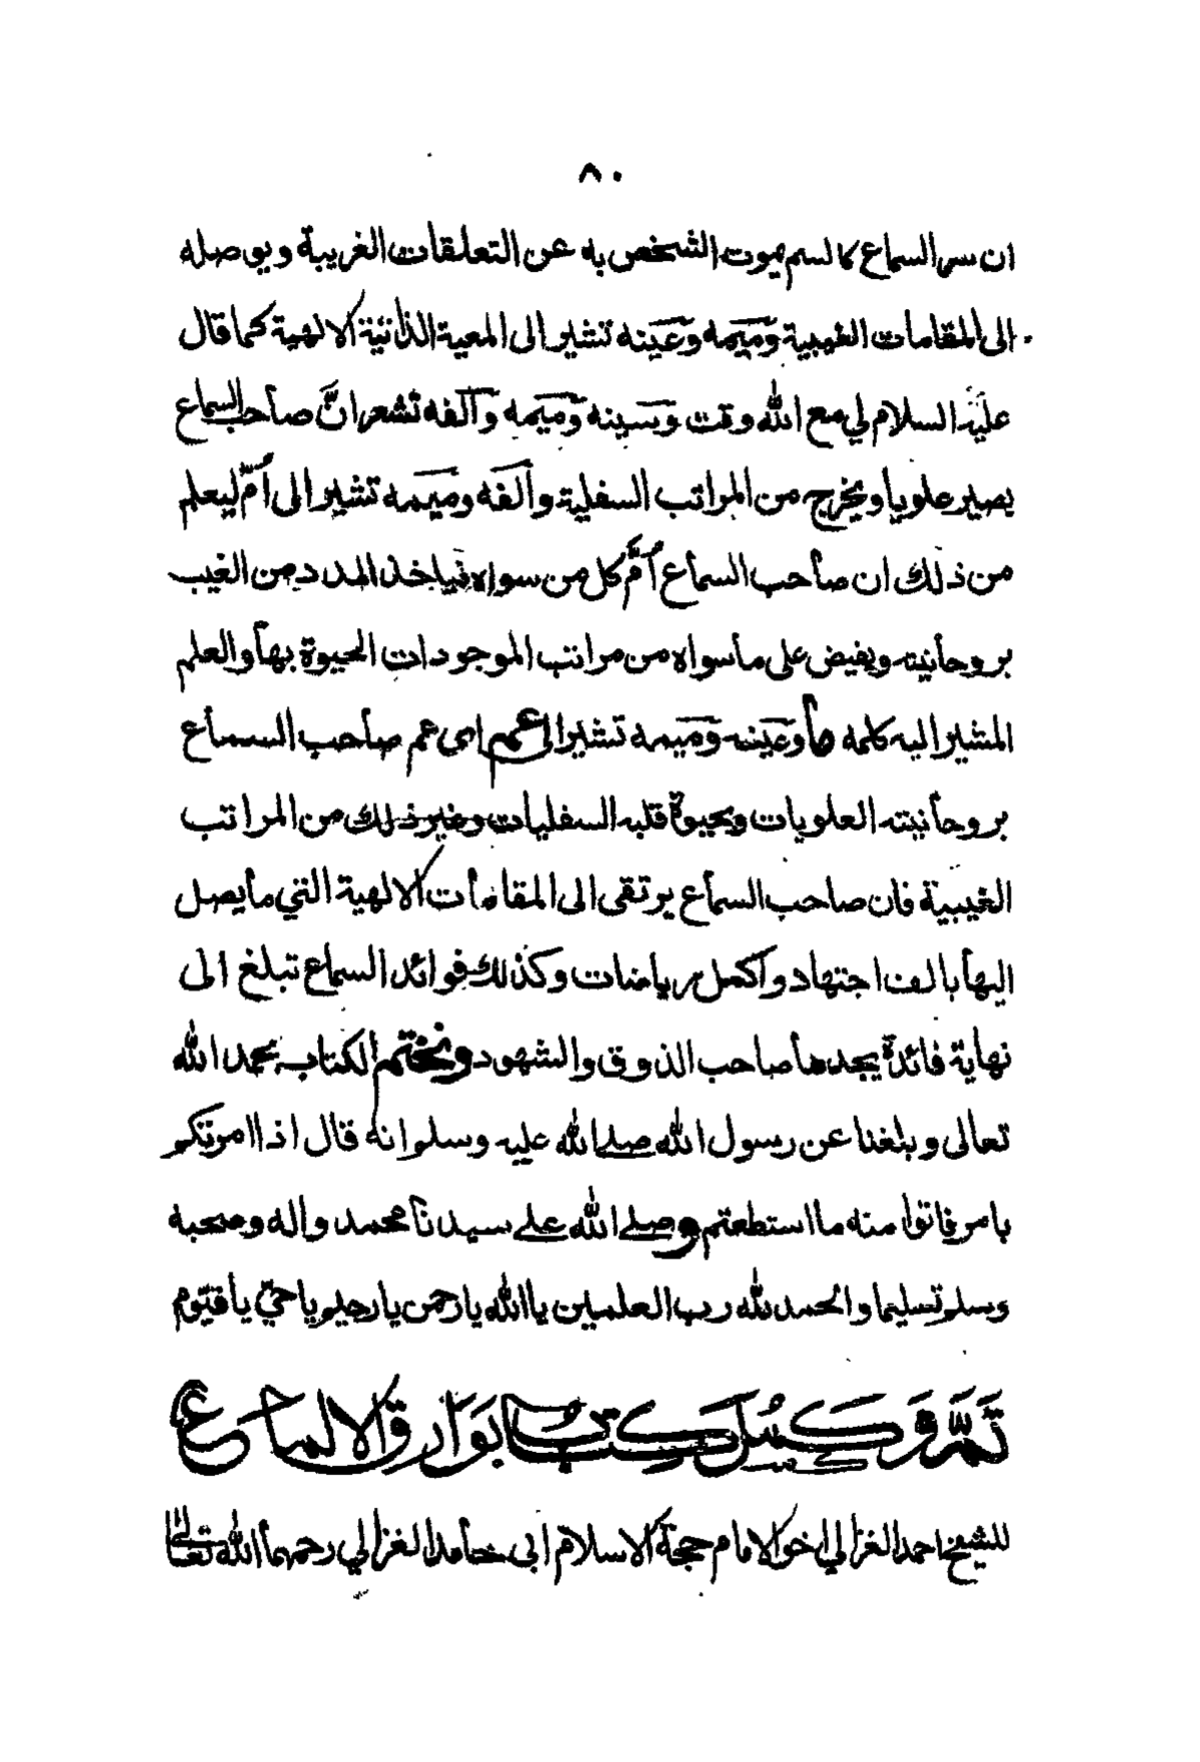 ٨٠
ان سر السماع كالسم يموت الشخص به عن التعلقات الغريبة ويوصله
الى المقامات الغيبية وميمه وعينه تشير الى المعية الذاتية الالهية كما قال
عليه السلام لي مع الله وقت وسينه وميمه وآلفه تشعر انّ صاحب السماع
يصير علويا ويخرج من المراتب السفلية وآلفه وميمه تشير الى اُمّ ليعلم
من ذلك ان صاحب السماع اُمّ كل من سواه فياخذ المدد من الغيب
بروحانيته ويفيض على ماسواه من مراتب الموجودات الحيوة بها والعلم
المشير اليه كلمه ما وعينه وميمه تشير الى عم اى عم صاحب السماع
بروحانيته العلويات وبحيوة قلبه السفليات وغير ذلك من المراتب
الغيبية فان صاحب السماع يرتقى الى المقامات الالهية التي ما يصل
اليها بالف اجتهاد واكمل رياضات وكذلك فوائد السماع تبلغ الى
نهاية فائدة يجدها صاحب الذوق والشهود ونختم الكتاب بحمد الله
تعالى وبلغنا عن رسول الله صلى الله عليه وسلم انه قال اذا امرتكم
بامر فاتوا منه ما استطعتم وصلى الله على سيدنا محمد واله وصحبه
وسلم تسليما والحمد لله رب العلمين يا الله يا رحمن يا رحيم يا حيّ يا قيّوم
تَمَّ وَكَمُلَ كِتَبُ بَوَارِقِ الالماع
للشيخ احمد الغزالي اخو الامام حجة الاسلام ابى حامد الغزالي رحمهما الله تعالى